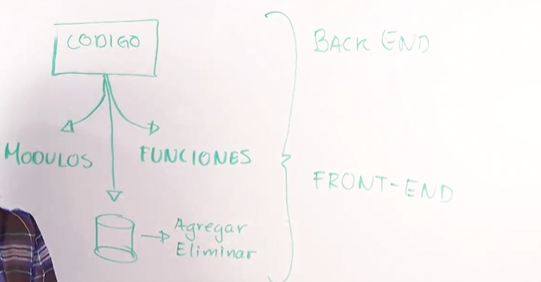 CODIGO
MODULOS
FUNCIONES
Agregar
Eliminar
BACK END
FRONT-END